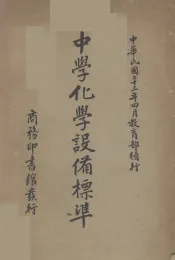 中華民國二十三年四月教育部編行
中學化學設備標準
商務印書館發行